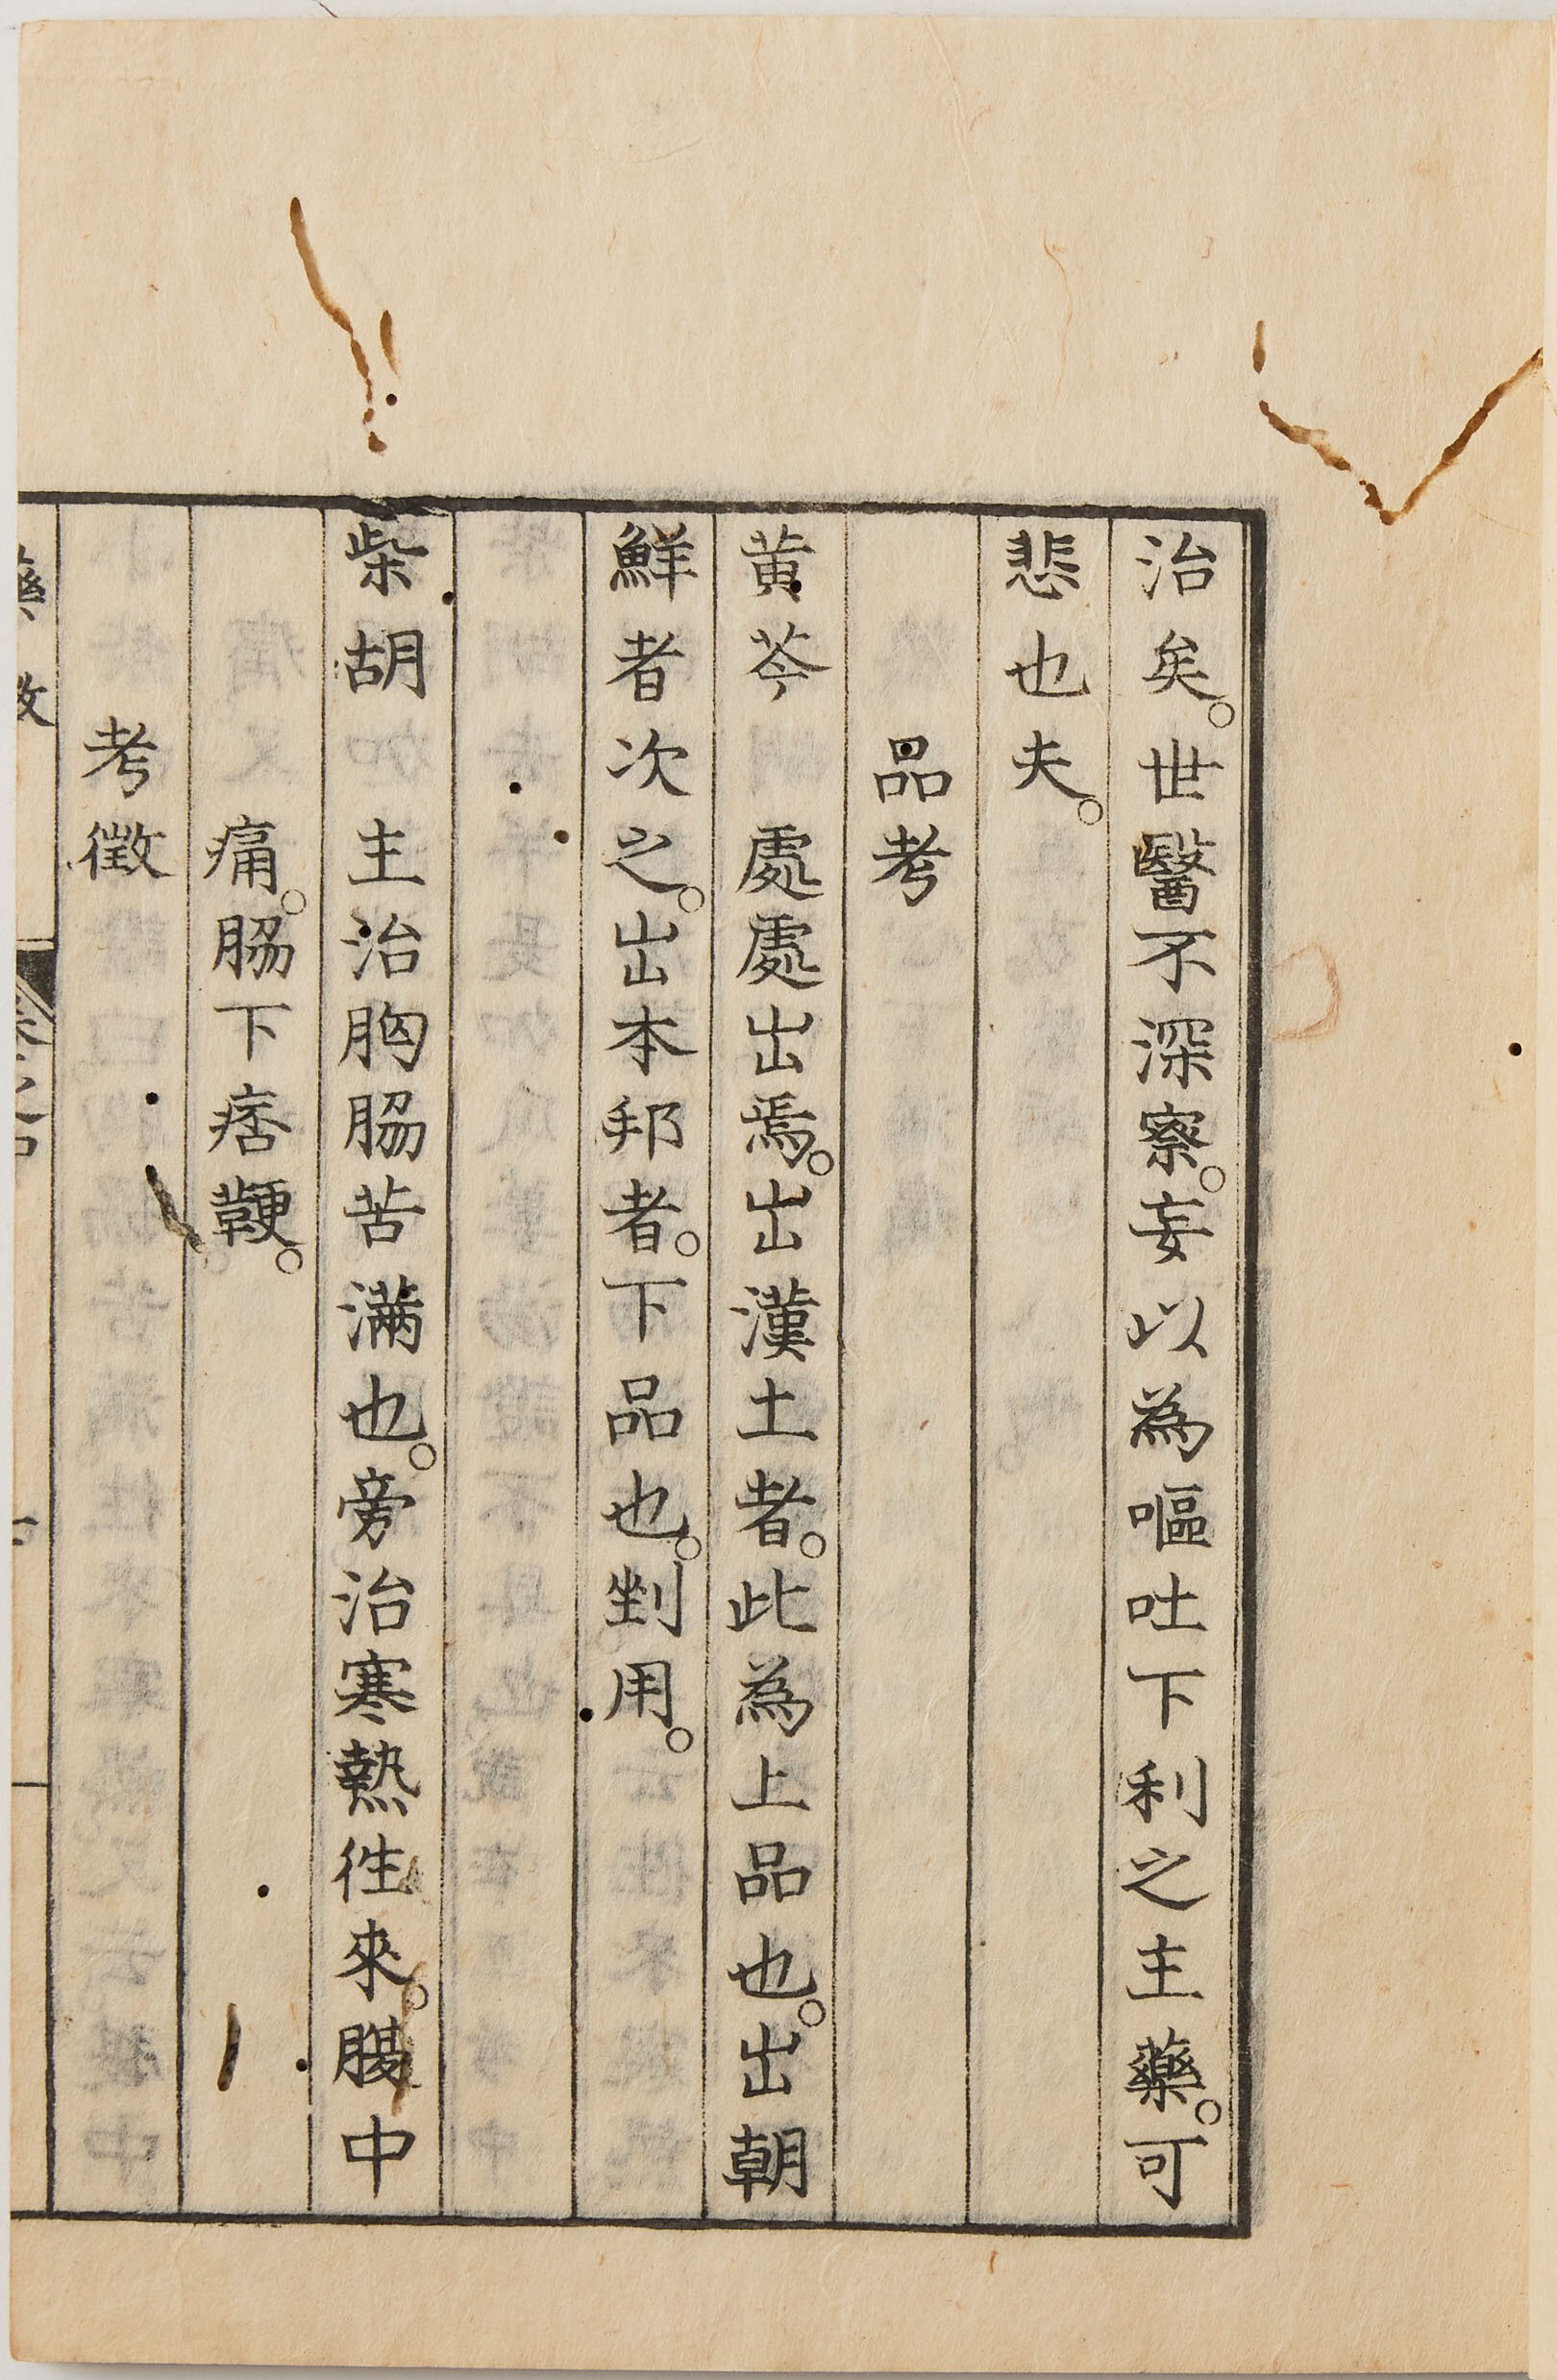 治矣。世醫不深察。妄以為嘔吐下利之主藥。可
悲也夫。
品考
黃芩　處處出焉。出漢土者。此為上品也。出朝
鮮者次之。出本邦者。下品也。剉用。
柴胡　主治胸脇苦滿也。旁治寒熱徃來。腹中
痛。脇下痞鞕。
考徵